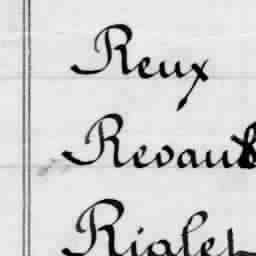 Reux
Revaut
Rialet